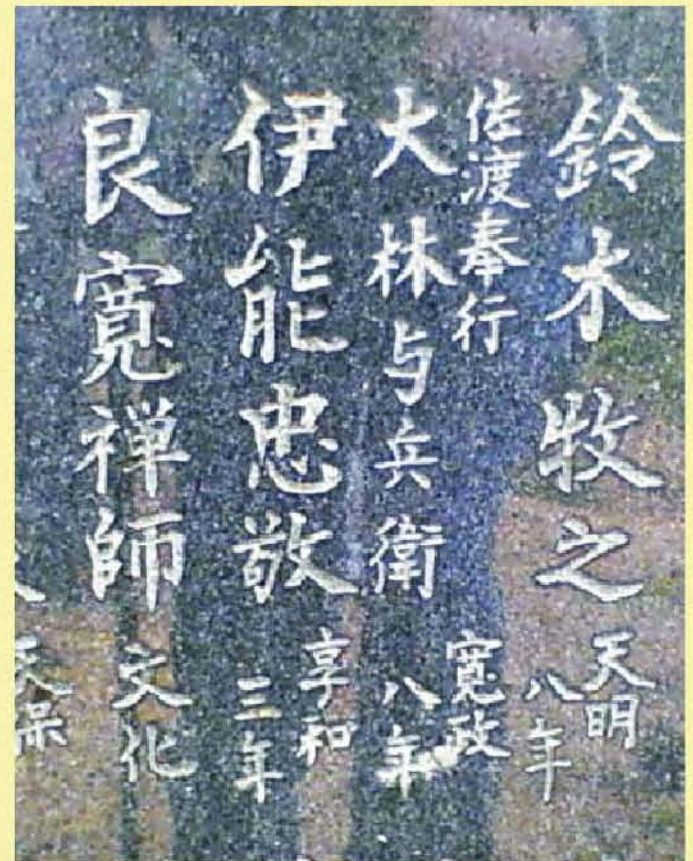 鈴木牧之 天明八年
佐渡奉行
大林与兵衛 寛政八年
伊能忠敬 享和三年
良寛禅師 文化
天保